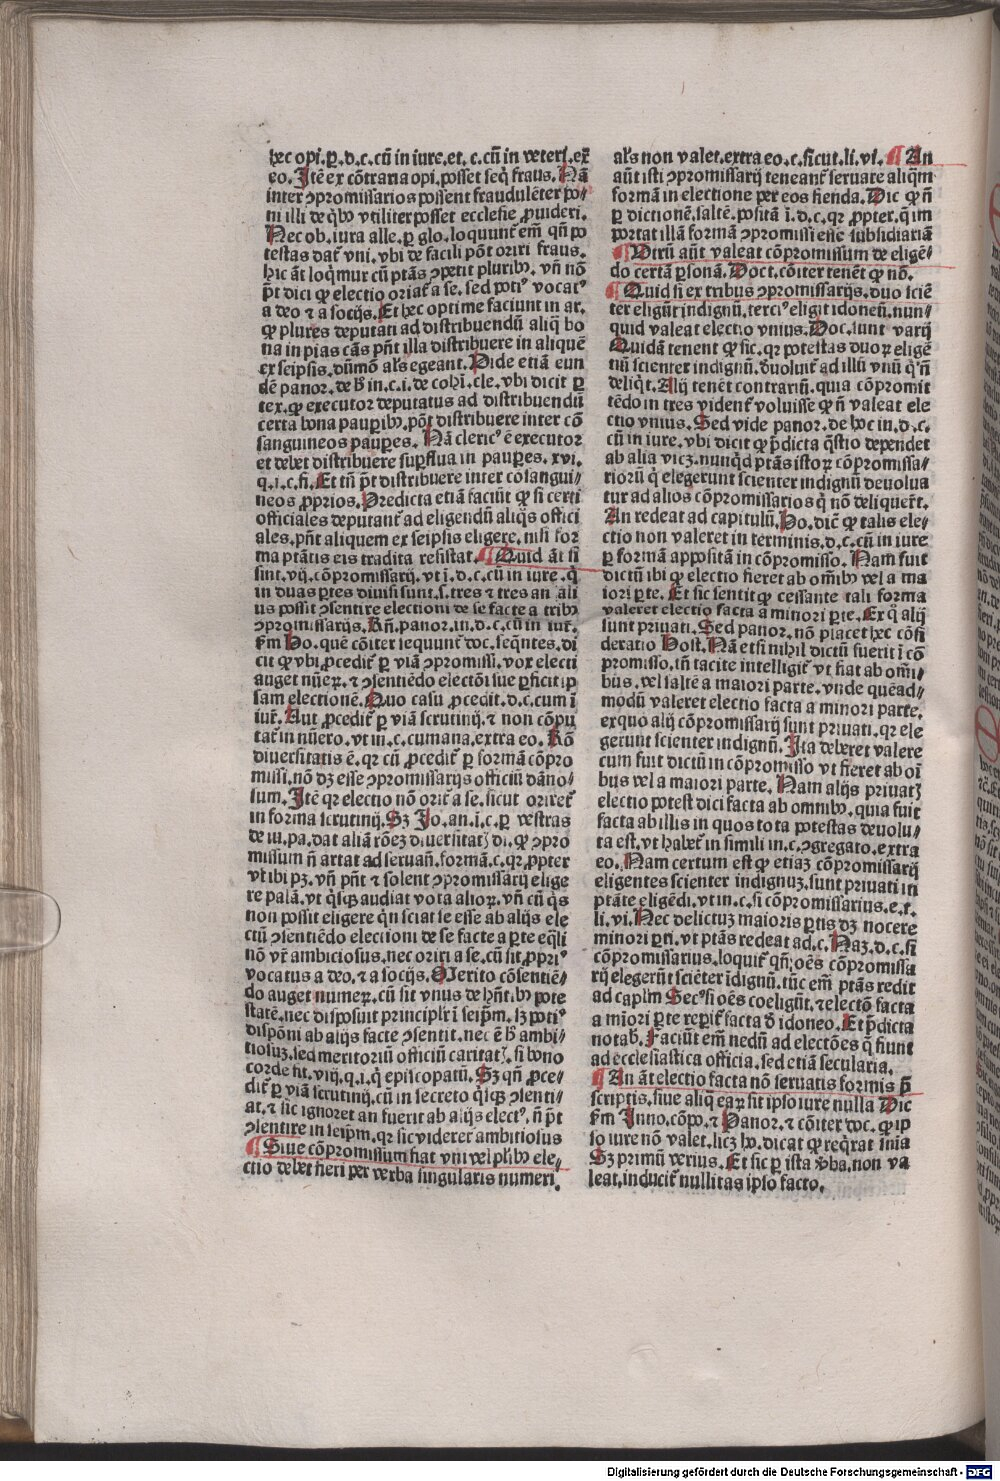 hec opi. ꝑ. d. c. cū in iure. et. c. cū in veteri. ex̄
eo. Itē ex cōtraria opi. posset seq̄ fraus. Nā
inter ꝯpromissarios possent fraudulēter po⸗
ni illi de q̄bꝰ vtiliter posset ecclesie ꝓuideri.
Nec ob. iura alle. ꝑ glo. loquunt̄ em̄ qn̄ po
testas dat̄ vni. vbi de facili pōt oriri fraus.
hic āt loq̄mur cū ptās ꝯpetit pluribꝰ. vn̄ nō
p̄t dici ꝙ electio oriat̄ a se. sed potiꝰ vocatꝰ
a deo ⁊ a socijs. Et hec optime faciunt in ar.
ꝙ plures deputati ad distribuendū aliq̄ bo
na in pias cās pn̄t illa distribuere in aliquē
ex seipsis. dūmō al̄s egeant. Vide etiā eun
dē panor. de hͦ in. c. i. de cohī. cle. vbi dicit ꝑ
tex. ꝙ executor deputatus ad distribuendū
certa bona pauꝑibꝰ. pōt distribuere inter cō
sanguineos pauꝑes. Nā clericꝰ ē executor
et debet distribuere suꝑflua in pauꝑes. xvi.
q. i. c. fi. Et tn̄ p̄t distribuere inter cōsangui⸗
neos ꝓprios. Predicta etiā faciūt ꝙ si certi
officiales deputant̄ ad eligendū aliq̄s offici
ales. pn̄t aliquem ex seipsis eligere. nisi for
ma ptātis eis tradita resistat. ¶ Quid āt si
sint. vij. cōpromissarij. vt ī. d. c. cū in iure. q̄
in duas ꝑtes diuisi sunt. s. tres ⁊ tres an ali
us possit ꝯsentire electioni de se facte a tribꝰ
ꝯpromissarijs. Rn̄. panor. in. d. c. cū in iur̄.
ẜm Ho. quē cōiter sequunt̄ doc. seq̄ntes. di
cit ꝙ vbi ꝓcedit̄ ꝑ viā ꝯpromissi. vox electi
auget nūeꝝ. ⁊ ꝯsentiēdo electōi sue ꝑficit ip
sam electionē. Quo casu ꝓcedit. d. c. cum ī
iur̄. Aut ꝓcedit̄ ꝑ viā scrutinij. ⁊ non cōpu
tat̄ in nūero. vt in. c. cumana. extra eo. Rō
diuersitatis ē. qꝛ cū ꝓcedit̄ ꝑ formā cōpro
missi. nō dꝫ esse ꝯpromissarijs officiū dāno⸗
sum. Itē qꝛ electio nō orit̄ a se. sicut oriret̄
in forma scrutinij. Sꝫ Jo. an. ī. c. ꝑ vestras
de iu. pa. dat aliā rōeꝫ diuersitatꝭ di. ꝙ ꝯpro
missum n̄ artat ad seruan̄. formā. c. qꝛ ꝓpter
vt ibi pꝫ. vn̄ pn̄t ⁊ solent ꝯpromissarij elige
re palā. vt q̄sꝗꝫ audiat vota alioꝝ. vn̄ cū q̄s
non possit eligere q̄n sciat se esse ab alijs ele
ctū ꝯsentiēdo electioni de se facte a ꝑte eq̄li
nō vr̄ ambiciosus. nec oriri a se. cū sit ꝓpriꝰ
vocatus a deo. ⁊ a socijs. Merito cōsentiē⸗
do auget numeꝝ. cū sit vnus de hn̄tibꝰ pote
statē. nec disposuit principlr̄ ī seip̄m. sꝫ potiꝰ
dispōni ab alijs facte ꝯsentit. nec ē hͦ ambi⸗
tiosuꝫ. sed meritoriū officiū caritatꝭ. si bono
corde fit. viij. q. i. q̄ episcopatū. Sꝫ qn̄ ꝓce⸗
dit̄ ꝑ viā scrutinij. cū in secreto q̄lꝗꝫ ꝯsenti⸗
at. ⁊ sic ignoret an fuerit ab alijs electꝰ. n̄ p̄t
ꝯsentire in seip̄m. qꝛ sic videret̄ ambitiosus
¶ Siue cōpromissum fiat vni vel pl̄ibꝰ ele⸗
ctio debet fieri per verba singularis numeri.
al̄s non valet. extra eo. c. sicut. li. vi. ¶ An
aūt isti ꝯpromissarij teneant̄ seruare aliq̄m
formā in electione per eos fienda. Dic ꝙ n̄
ꝑ dictionē. saltē. positā ī. d. c. qꝛ ꝓpter. q̄ im
portat illā formā ꝯpromissi esse subsidiariā
¶ Vtrū aūt valeat cōpromissum de eligē⸗
do certā ꝑsonā. Doct. cōiter tenēt ꝙ nō.
¶ Quid si ex tribus ꝯpromissarijs. duo sciē
ter eligūt indignū. terciꝰ eligit idoneū. nun⸗
quid valeat electio vnius. Doc. sunt varij
Quidā tenent ꝙ sic. qꝛ potestas duoꝝ eligē
tiū scienter indignū. deuoluit̄ ad illū vnū q̄ n̄
deliq̄t. Alij tenēt contrariū. quia cōpromit
tēdo in tres vident̄ voluisse ꝙ n̄ valeat ele
ctio vnius. Sed vide panor. de hoc in. d. c.
cū in iure. vbi dicit ꝙ p̄dicta q̄stio dependet
ab alia vicꝫ. nunq̄d ptās istoꝝ cōpromissa⸗
rioꝝ q̄ elegerunt scienter indignū deuolua
tur ad alios cōpromissarios q̄ nō deliquer̄t.
An redeat ad capitulū. Ho. dic̄ ꝙ talis ele⸗
ctio non valeret in terminis. d. c. cū in iure
ꝑ formā appositā in cōpromisso. Nam fuit
dictū ibi ꝙ electio fieret ab om̄ibꝰ vel a ma
iori ꝑte. Et sic sentit ꝙ cessante tali forma
valeret electio facta a minori ꝑte. Ex q̄ alij
sunt priuati. Sed panor. nō placet hec cōsi
deratio Host. Nā etsi nihil dictū fuerit ī cō
promisso. tn̄ tacite intelligit̄ vt fiat ab om̄i⸗
bus. vel saltē a maiori parte. vnde quēad⸗
modū valeret electio facta a minori parte.
exquo alij cōpromissarij sunt priuati. qꝛ ele
gerunt scienter indignū. Ita deberet valere
cum fuit dictū in cōpromisso vt fieret ab oī
bus vel a maiori parte. Nam alijs priuatꝭ
electio potest dici facta ab omnibꝰ. quia fuit
facta ab illis in quos tota potestas deuolu⸗
ta est. vt habet̄ in simili in. c. ꝯgregato. extra
eo. Nam certum est ꝙ etiaꝫ cōpromissarij
eligentes scienter indignuꝫ. sunt priuati in
ptāte eligēdi. vt in. c. si cōpromissarius. e. t.
li. vi. Nec delictuꝫ maioris ꝑtis dꝫ nocere
minori ꝑti. vt ptās redeat ad. c. Naꝫ. d. c. si
cōpromissarius. loquit̄ qn̄ oēs cōpromissa
rij elegerūt sciēter īdignū. tūc em̄ ptās redit
ad caplm̄ Secꝰ si oēs coeligūt. ⁊ electō facta
a maiori ꝑte reꝑit̄ facta ď idoneo. Et p̄dicta
notab̄. Faciūt em̄ nedū ad electōes q̄ fiunt
ad ecclesiastica officia. sed etiā secularia.
¶ An āt electio facta nō seruatis formis p̄
scriptis. siue aliq̄ eaꝝ sit ipso iure nulla Dic
ẜm Inno. cōpo. ⁊ Panor. ⁊ cōiter doc. ꝙ ip
so iure nō valet. licꝫ ho. dicat ꝙ req̄rat̄ sn̄ia
Sꝫ primū verius. Et sic ꝑ ista vba. non va
leat. inducit̄ nullitas ipso facto.
Digitalisierung gefördert durch die Deutsche Forschungsgemeinschaft - DFG